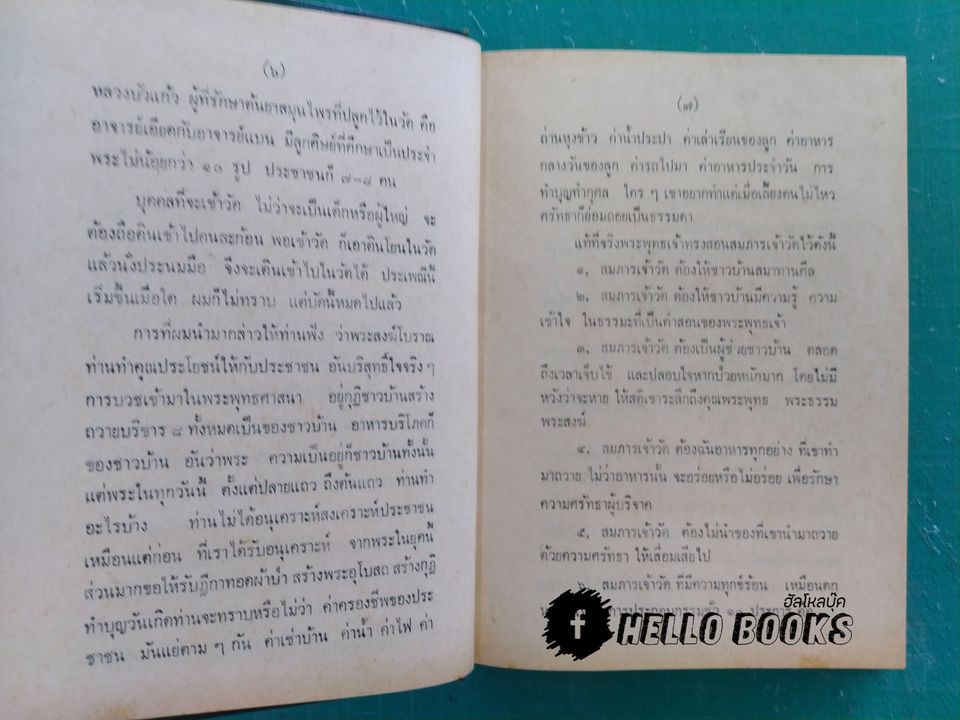 (๖)
หลวงบัวแก้ว ผู้ที่รักษาต้นยาสมุนไพรที่ปลูกไว้ในวัด คือ
อาจารย์เอียดกับอาจารย์แบน มีลูกศิษย์ที่ศึกษาเป็นประจำ
พระไม่น้อยกว่า ๑๐ รูป ประชาชนก็ ๗-๘ คน
บุคคลที่จะเข้าวัด ไม่ว่าจะเป็นเด็กหรือผู้ใหญ่ จะ
ต้องถือดินเข้าไปคนละก้อน พอเข้าวัด ก็เอาดินโยนในวัด
แล้วนั่งประนมมือ จึงจะเดินเข้าไปในวัดได้ ประเพณีนี้
เริ่มขึ้นเมื่อใด ผมก็ไม่ทราบ แต่บัดนี้หมดไปแล้ว
การที่ผมนำมากล่าวให้ท่านฟัง ว่าพระสงฆ์โบราณ
ท่านทำคุณประโยชน์ให้กับประชาชน อันบริสุทธิ์ใจจริง ๆ
การบวชเข้ามาในพระพุทธศาสนา อยู่กุฏิชาวบ้านสร้าง
ถวายบริขาร ๘ ทั้งหมดเป็นของชาวบ้าน อาหารบริโภคก็
ของชาวบ้าน อันว่าพระ ความเป็นอยู่ก็ชาวบ้านทั้งนั้น
แต่พระในทุกวันนี้ ตั้งแต่ปลายแถว ถึงต้นแถว ท่านทำ
อะไรบ้าง ท่านไม่ได้อนุเคราะห์สงเคราะห์ประชาชน
เหมือนแต่ก่อน ที่เราได้รับอนุเคราะห์ จากพระในยุคนี้
ส่วนมากขอให้รับฎีกาทอดผ้าป่า สร้างพระอุโบสถ สร้างกุฏิ
ทำบุญวันเกิดท่านจะทราบหรือไม่ว่า ค่าครองชีพของประ
ชาชน มันแย่ตาม ๆ กัน ค่าเช่าบ้าน ค่าน้ำ ค่าไฟ ค่า
(๗)
ถ่านหุงข้าว ค่าน้ำประปา ค่าเล่าเรียนของลูก ค่าอาหาร
กลางวันของลูก ค่ารถไปมา ค่าอาหารประจำวัน การ
ทำบุญทำกุศล ใคร ๆ เขาอยากทำแต่เมื่อเลี้ยงตนไม่ไหว
ศรัทธาก็ย่อมถอยเป็นธรรมดา
แท้ที่จริงพระพุทธเจ้าทรงสอนสมภารเจ้าวัดไว้ดังนี้
๑. สมภารเจ้าวัด ต้องให้ชาวบ้านสมาทานศีล
๒. สมภารเจ้าวัด ต้องให้ชาวบ้านมีความรู้ ความ
เข้าใจ ในธรรมะที่เป็นคำสอนของพระพุทธเจ้า
๓. สมภารเจ้าวัด ต้องเป็นผู้ช่วยชาวบ้าน ตลอด
ถึงเวลาเจ็บไข้ และปลอบใจหากป่วยหนักมาก โดยไม่มี
หวังว่าจะหาย ให้สติเขาระลึกถึงคุณพระพุทธ พระธรรม
พระสงฆ์
๔. สมภารเจ้าวัด ต้องฉันอาหารทุกอย่าง ที่เขาทำ
มาถวาย ไม่ว่าอาหารนั้น จะอร่อยหรือไม่อร่อย เพื่อรักษา
ความศรัทธาผู้บริจาค
๕. สมภารเจ้าวัด ต้องไม่นำของที่เขานำมาถวาย
ด้วยความศรัทธา ให้เสื่อมเสียไป
สมภารเจ้าวัด ที่มีความทุกข์ร้อน เหมือนตก
การประกอบกรรมชั่ว ๑๑ ประการ คือ
ฮัลโหลบุ๊ค
f HELLO BOOKS